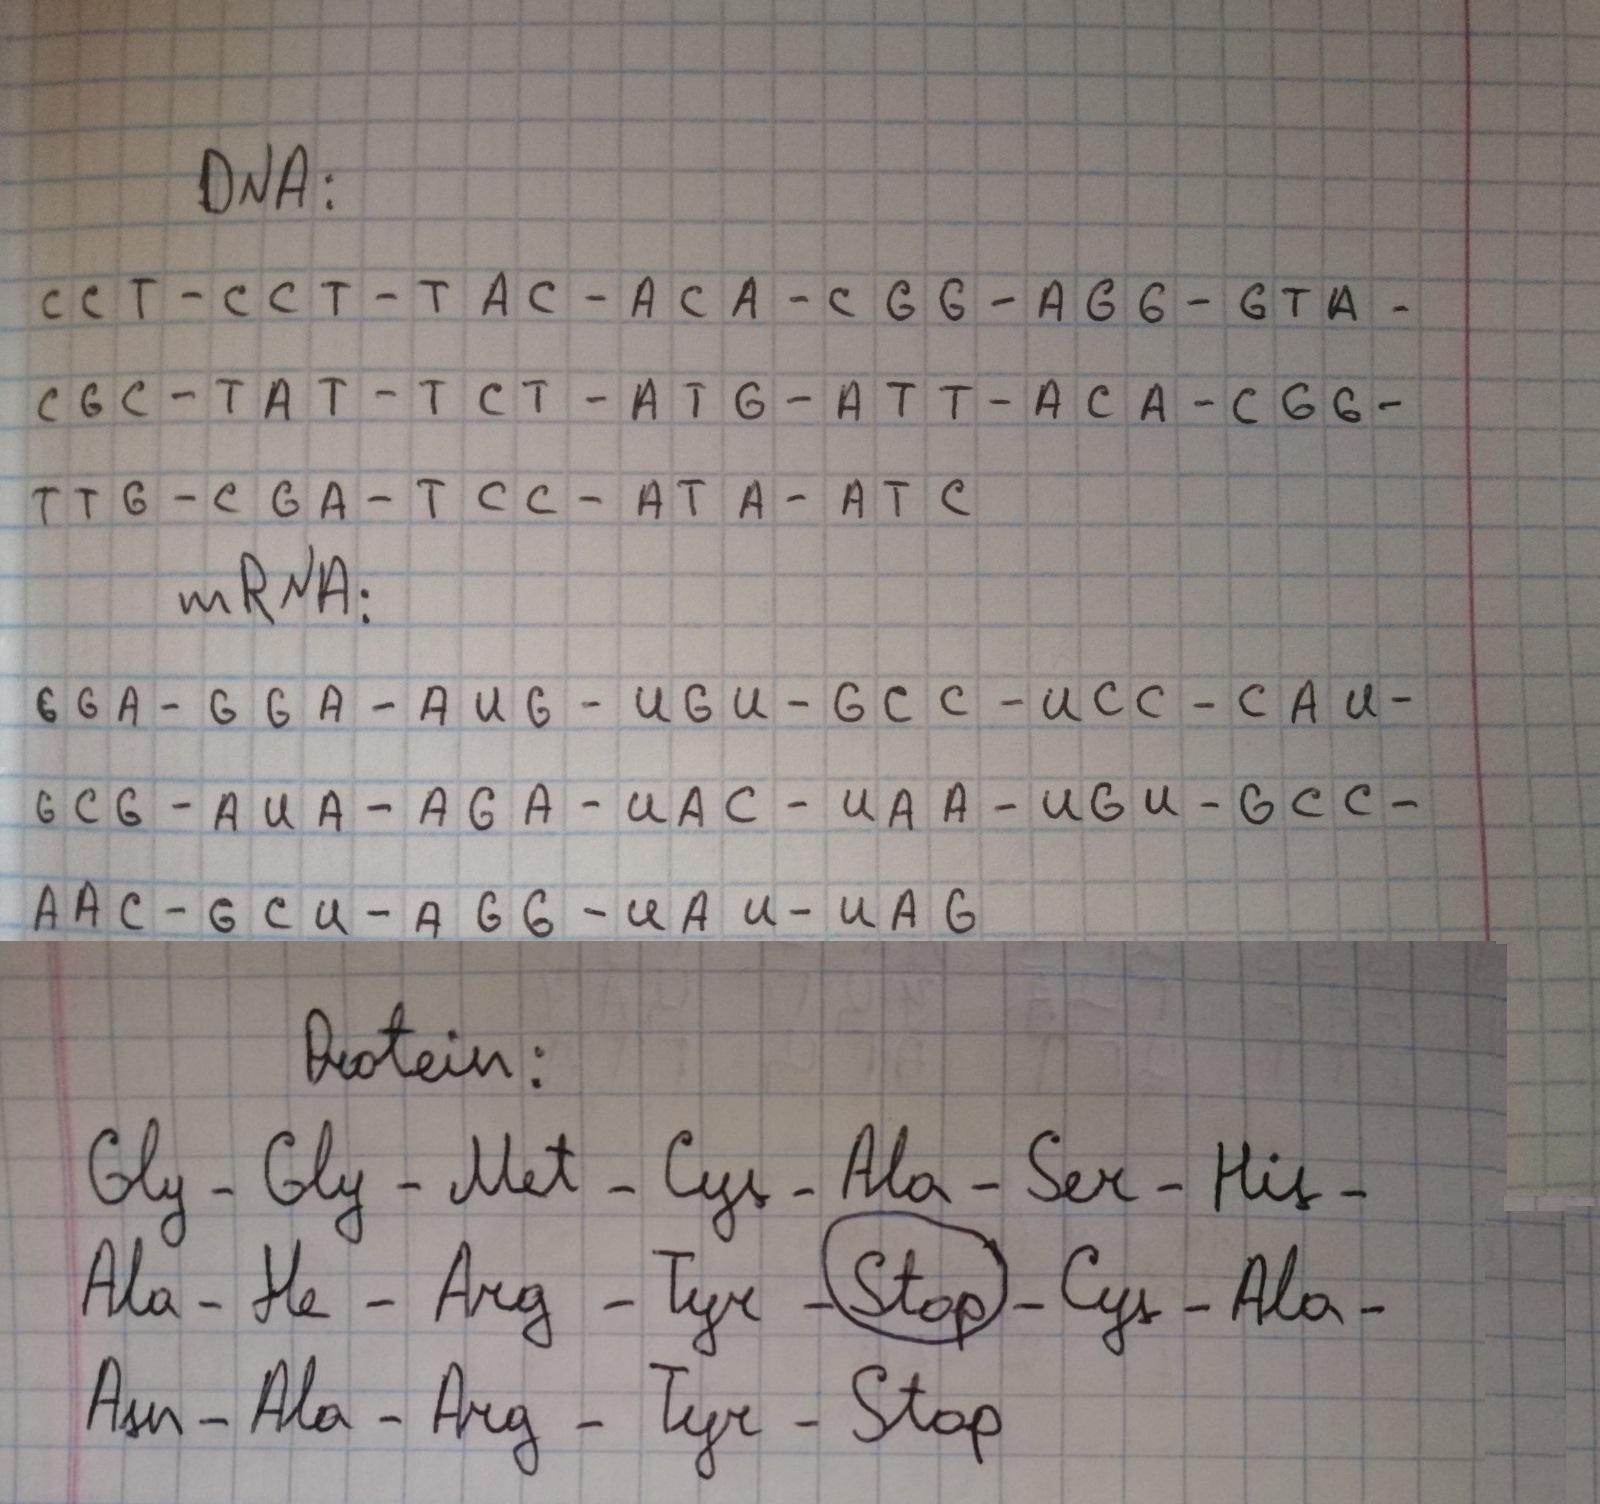 DNA:
CCT - CCT - TAC - ACA - CGG - AGG - GTA -
CGC - TAT - TCT - ATG - ATT - ACA - CGG -
TTG - CGA - TCC - ATA - ATC
mRNA:
GGA - GGA - AUG - UGU - GCC - UCC - CAU -
GCG - AUA - AGA - UAC - UAA - UGU - GCC -
AAC - GCU - AGG - UAU - UAG
Protein:
Gly - Gly - Met - Cys - Ala - Ser - His -
Ala - Ile - Arg - Tyr - Stop - Cys - Ala -
Asn - Ala - Arg - Tyr - Stop